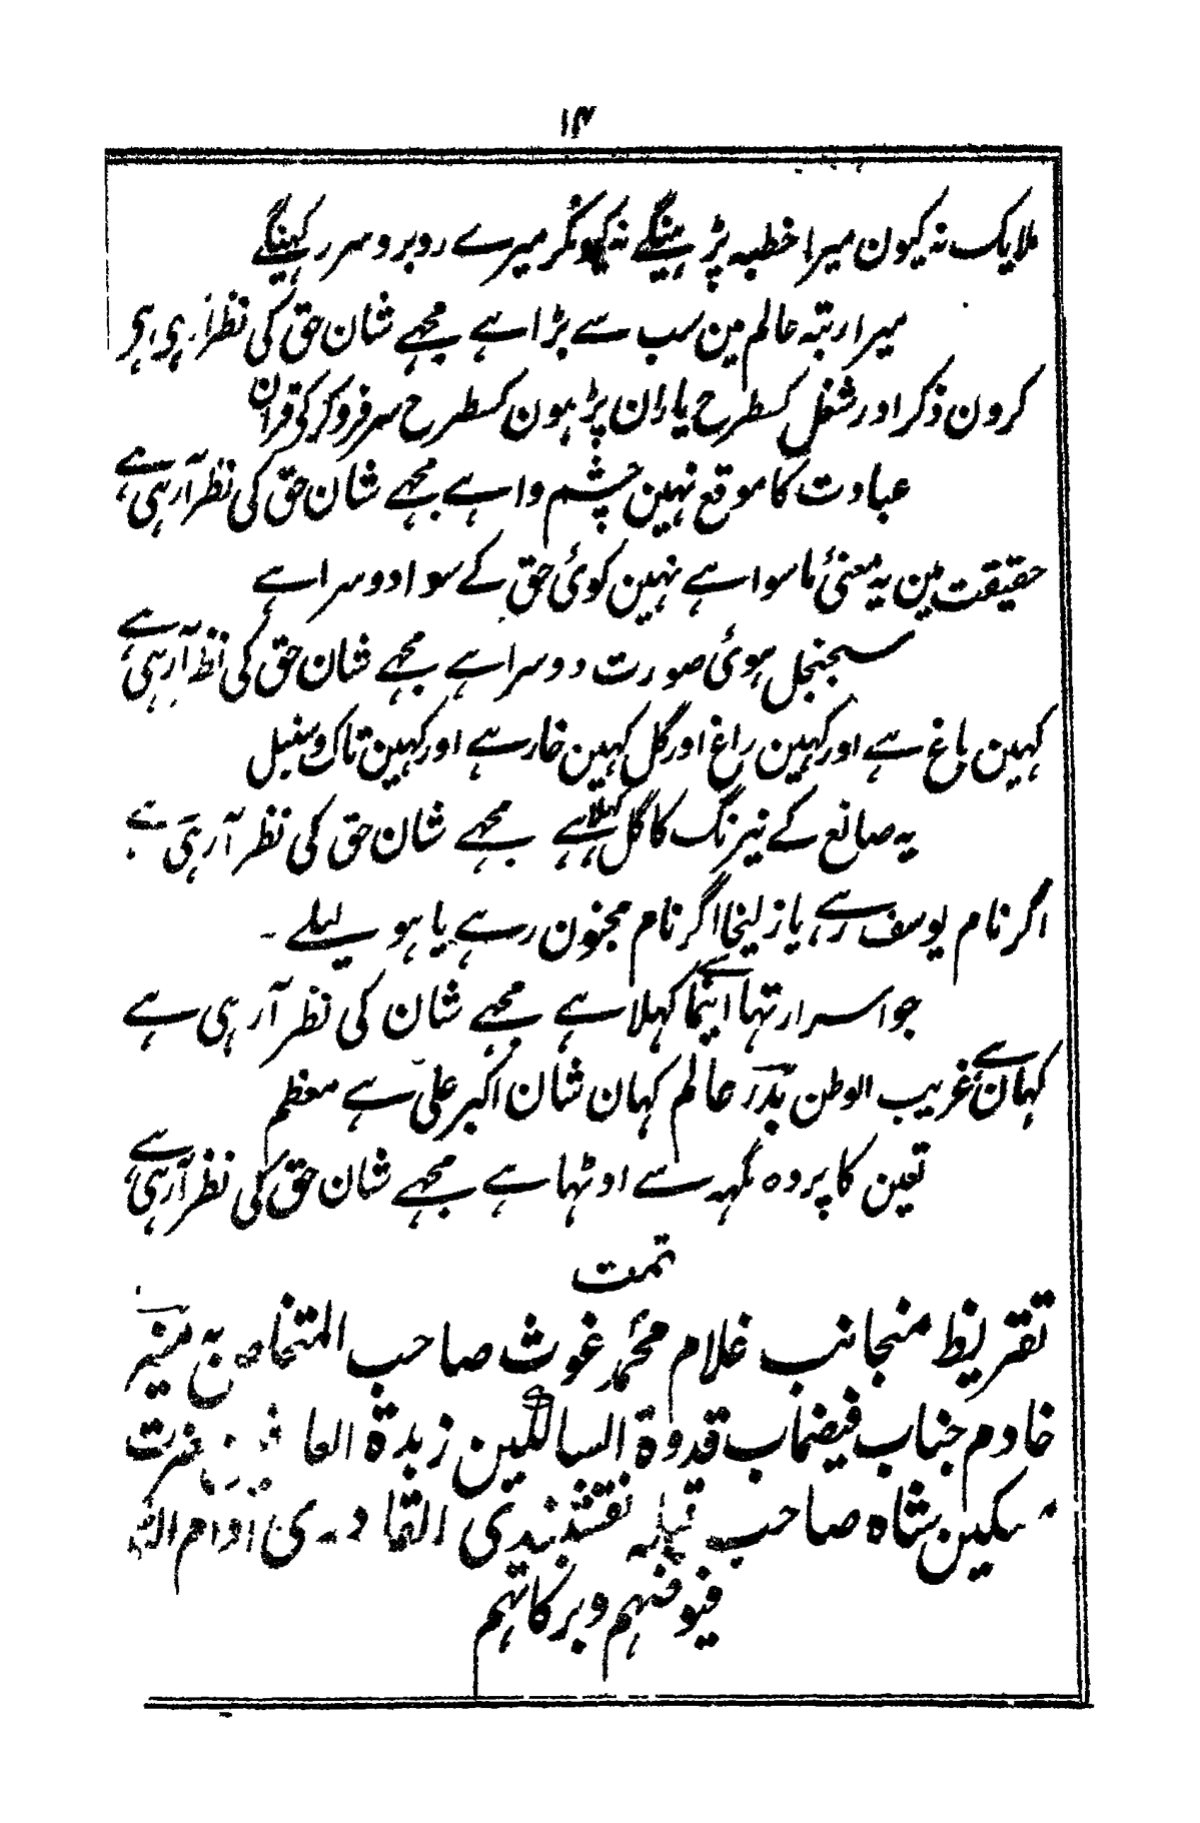 ۱۴
ملایک نہ کیون میرا خطبہ پڑہینگے نہ کیونکر میرے روبرو سر رکہینگے
میرا رتبہ عالم مین سب سے بڑا ہے مجہے شان حق کی نظر آ رہی ہی
کرون ذکر اور شغل کسطرح یاران پڑہون کسطرح سر فرو کرکی قرآن
عبادت کا موقع نہین چشم وا ہے مجہے شان حق کی نظر آرہی ہے
حقیقت مین یہ معنیٔ ماسوا ہے نہین کوئی حق کے سوا دوسرا ہے
سجنجل ہوئی صورت دوسرا ہے مجہے شان حق کی نظر آرہی ہے
کہین باغ ہے اور کہین راغ اور گل کہین خار ہے اور کہین تاک و سنبل
یہ صانع کے نیرنگ کا گل کہلا ہے مجہے شان حق کی نظر آ رہی ہے
اگر نام یوسف رہے یا زلیخا اگر نام مجنون رہے یا ہو لیلے
جو اسرار تہا آینما کہلا ہے مجہے شان کی نظر آ رہی ہے
کہان ہے غریب الوطن بدر عالم کہان شان اکبر علی ہے معظم
تعین کا پردہ نگہہ سے اوٹہا ہے مجہے شان حق کی نظر آرہی ہے
تمت
تقریظ منجانب غلام محمد غوث صاحب المتخلص بہ
خادم جناب فیضماب قدوۃ السالکین زبدۃ
مسکین شاہ صاحب قبلہ نقشبندی القادری ادام اللہ
فیوضہم وبرکاتہم